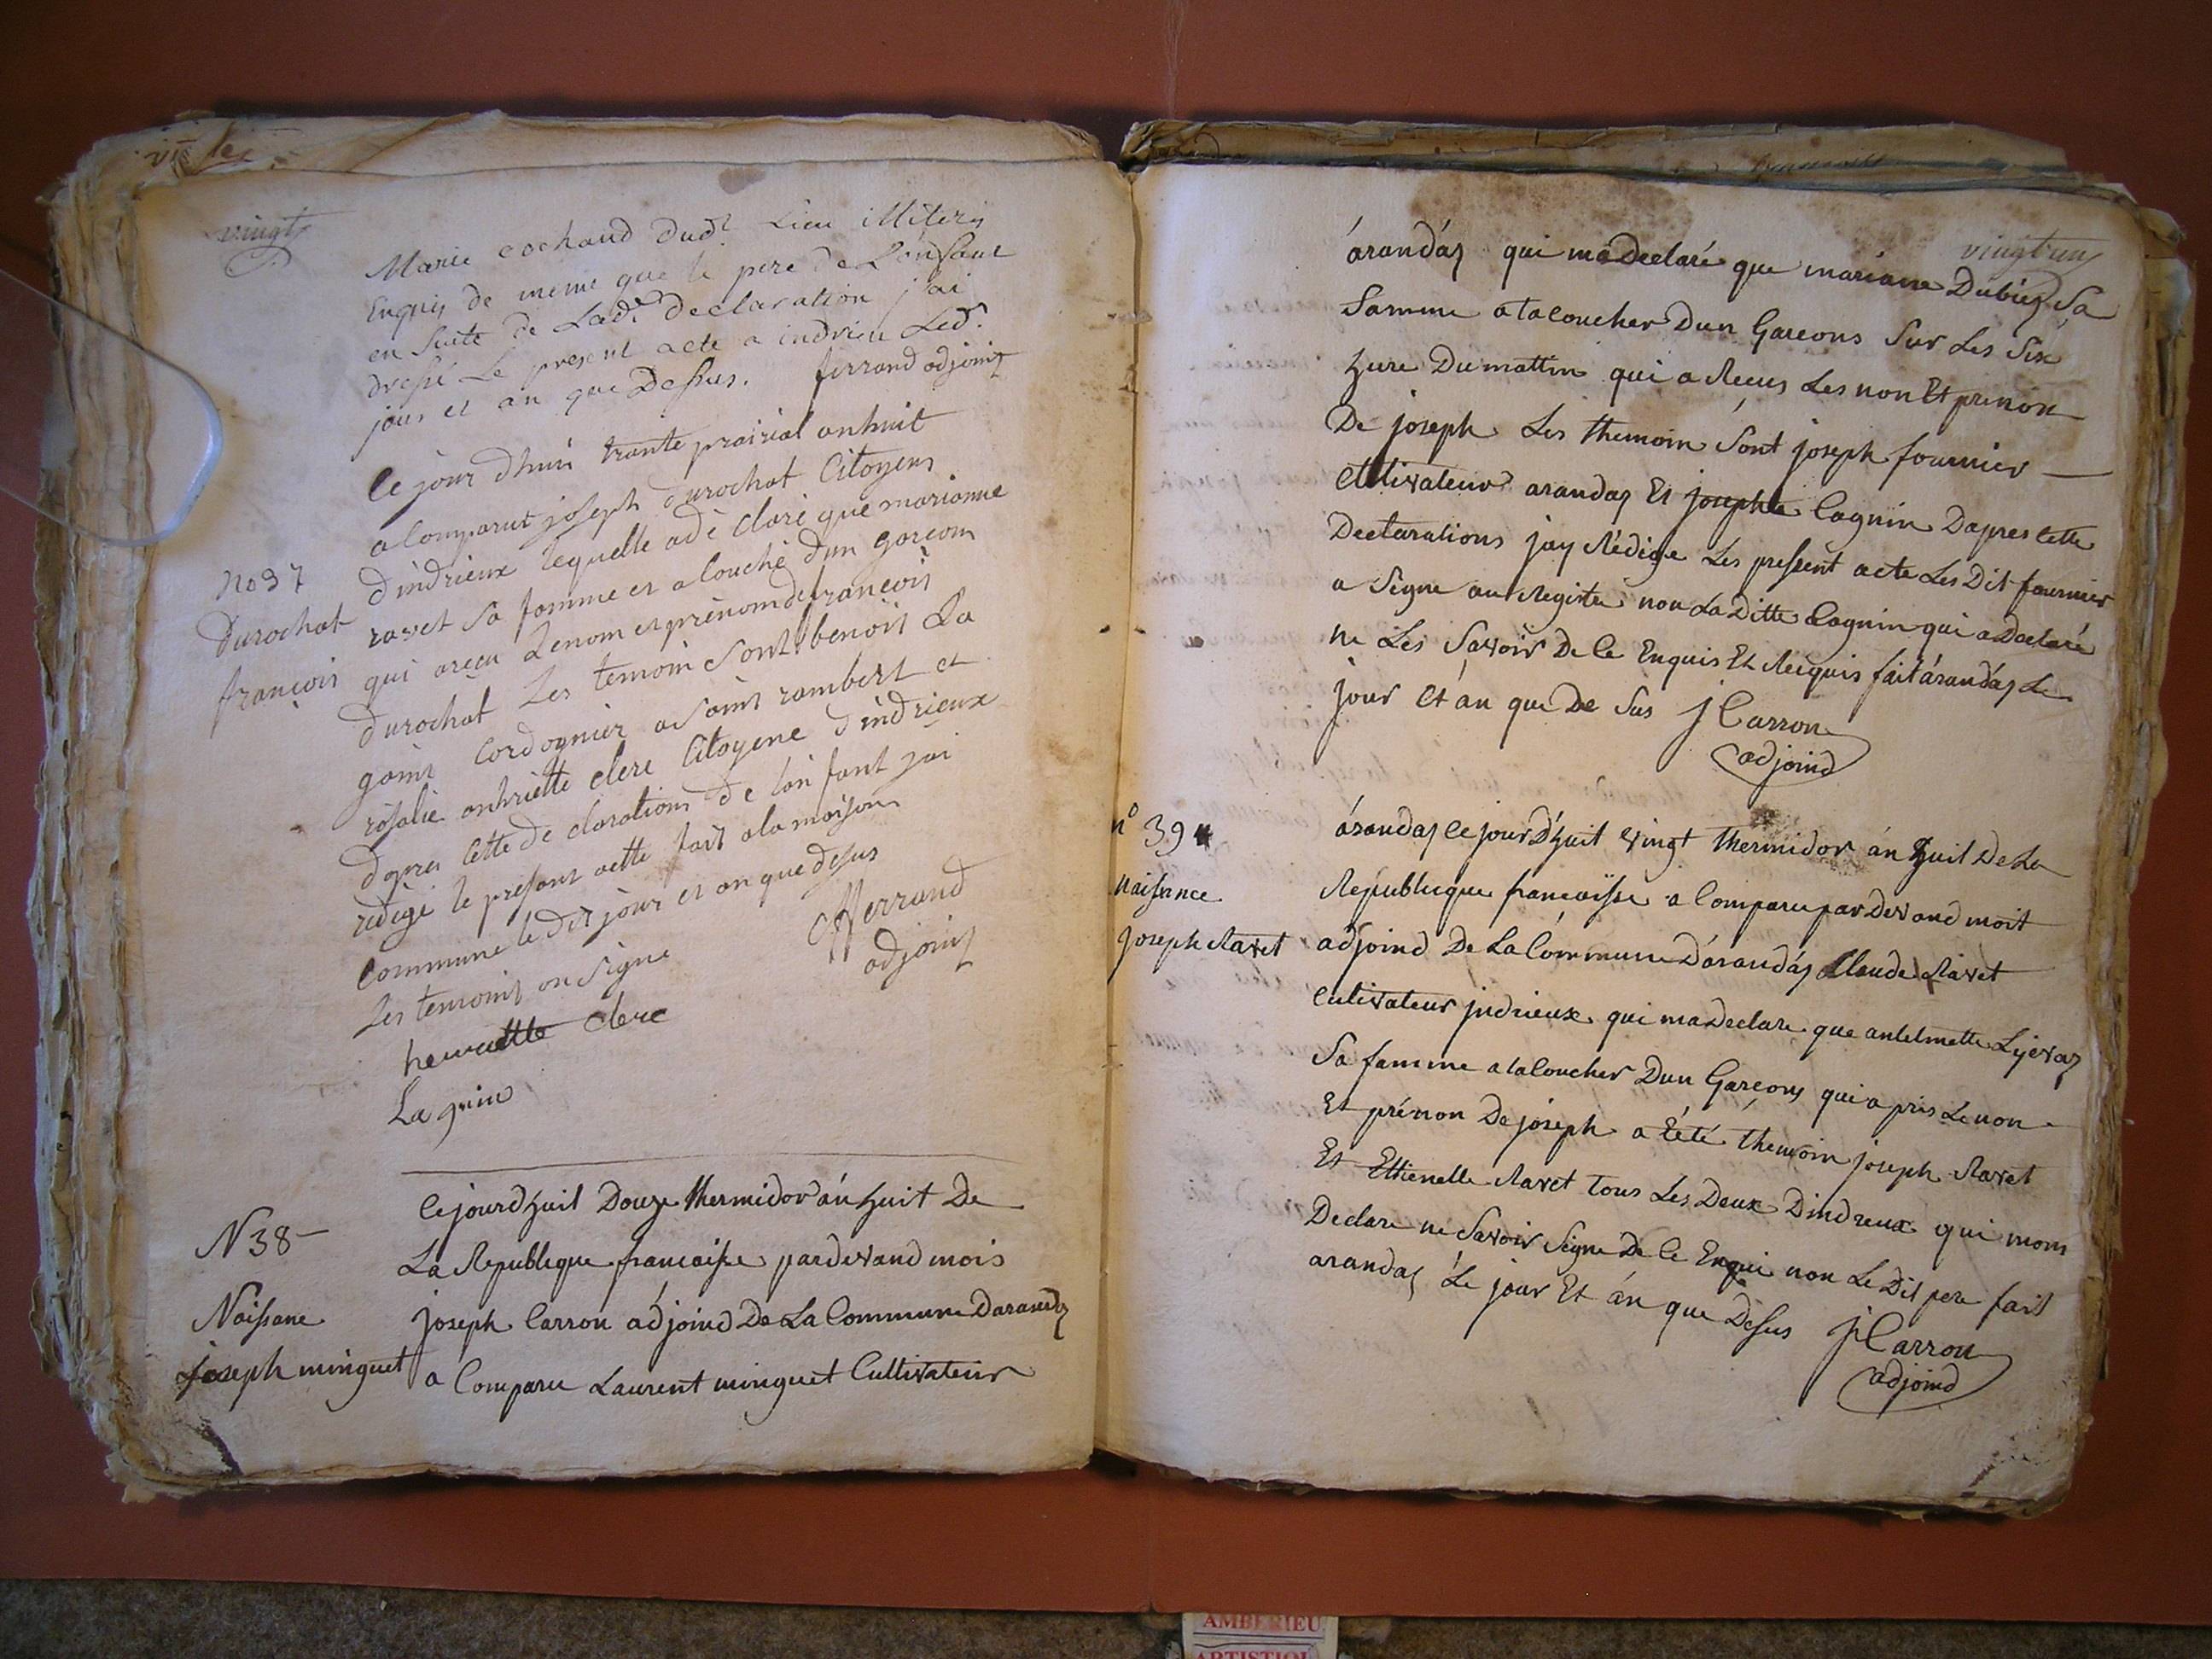 vingt
Marie cochand dud.t Lieu illiteris
Enquis de meme que le pere de L'enfant
en suite de Lad.e declaration j'ai
dressé Le present acte a indrieu Led.
jour et an que Dessus. ferrand adjoint
No 37
Durochat
françois
Ce jour dhui trante prairial an huit
a Comparut joseph durochat Citoyens
d'indrieux lequelle a dè claré que marianne
ravet sa famme et a Couché d'un garcom
qui a reçu Le nom et prènom de françois
durochat Les temoin sont benoit La
goint Cordognier a saint rambert et
rosalie anhriette clere Citoyene d'indrieux
dapres Cette de claration de l'en fant jai
redegé le present actte fait a la maison
Commune le dit jour et an que desus
Les temoins on signe
fferrand
adjoint
henriette clerc
Lagnin
N 38 -
Naissane
joseph minguet
Ce jourdhuit Douze thermidor án huit De
La Republique francaisse pardevand mois
joseph Carron adjoind De La Commune Darandas
a Comparu Laurent minguet Cultivateur
vingt un
árandás qui ma Declaré que mariane Dubiez Sa
famme a tacoucher Dun Gareons Sur Les Six
hure Du mattin qui a Recus Les non Et prenon
De joseph Les themoin Sont joseph fournier
Cultivateur arandas Et josephte Cagnin Dapres Cette
Declarations jay Rédige Les pressent acte Les Dit fournier
a Signe au Registre non La Ditte Cagnin qui a Declaré
ne Les Savoir De Ce Enquis Et Requis fait árandás Le
jour Et án que De sus J Carron
adjoind
n° 39
Naissance
Joseph Ravet
árandas Ce jour D'huit vingt thermidor án huit De La
Republique francaïsse a Comparu par Devand moit
adjoind De La Commune D'árandás Claude Ravet
Cultivateur jndrieux qui ma Declare que antelmette Lyevaz
Sa famme a tacoucher Dun Garçons qui a pris Le non
Et prénon De joseph a Eété themoin joseph Ravet
Et Ettienette Ravet tous Les Deux Dindreux qui mom
Declare ne Savoir Signe De Ce Enqui non Le Dit pere fait
arandas Le jour Et án que Desus J Carron
adjoind
AMBERIEU